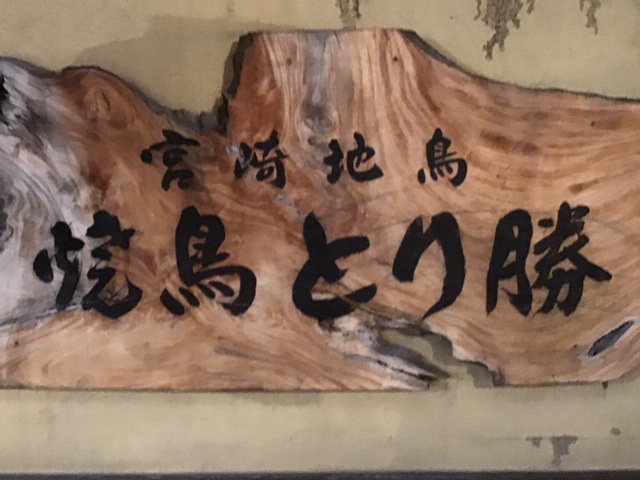 宮崎地鳥
焼鳥とり勝